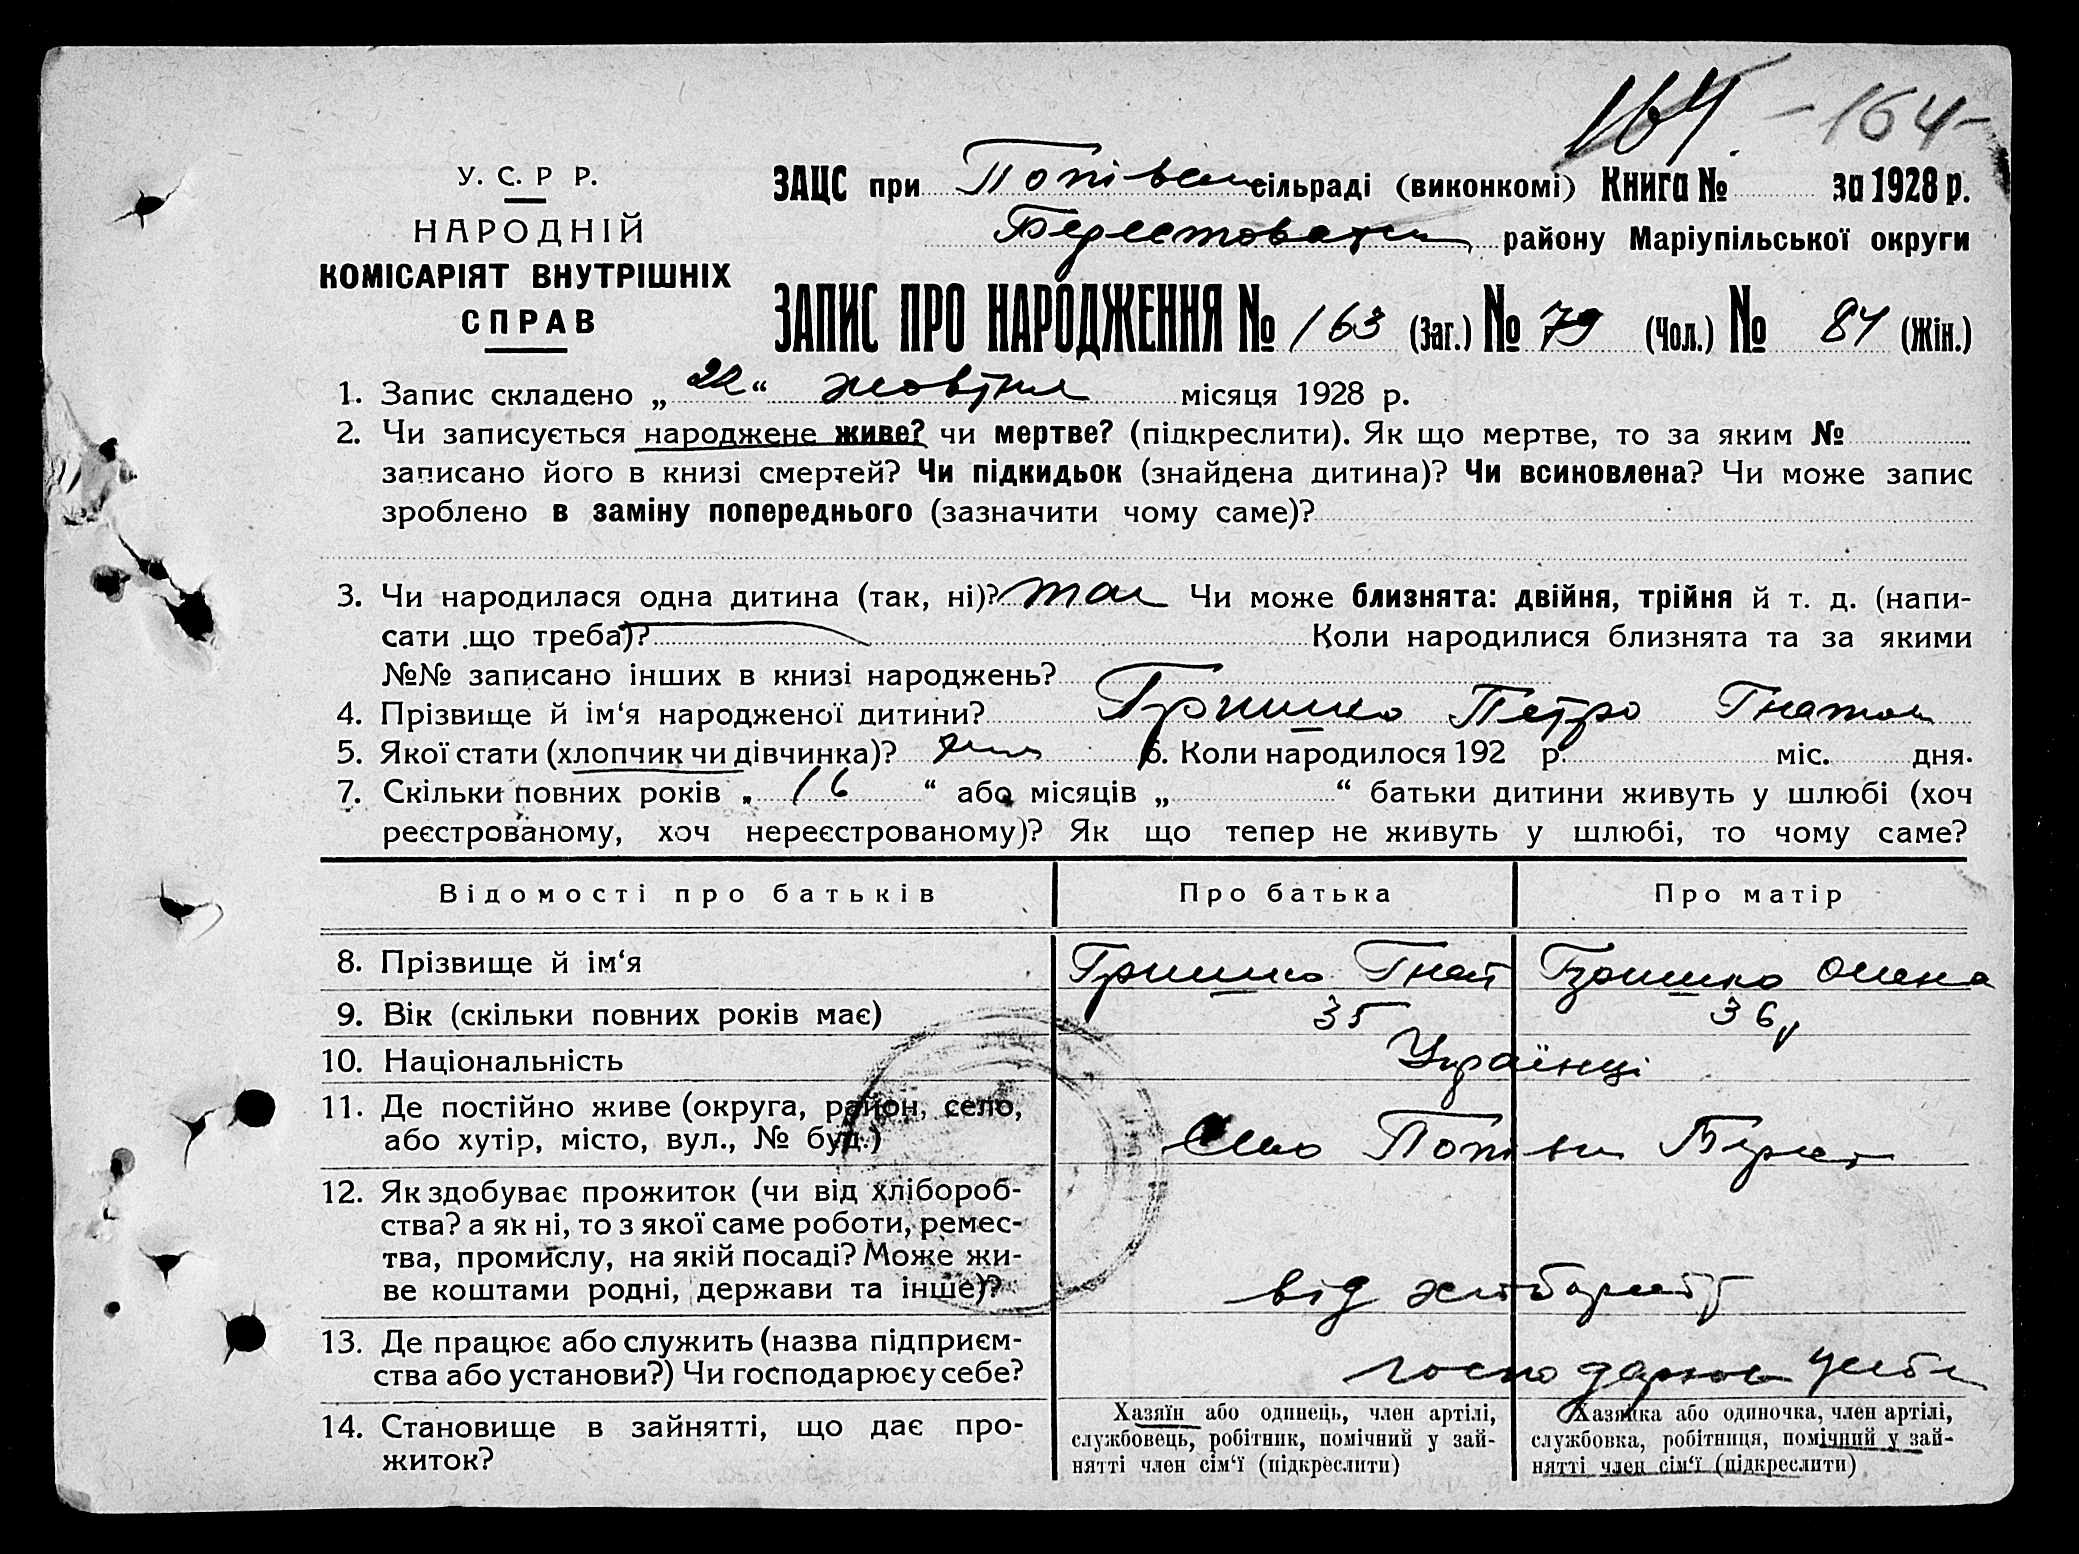 164. - 164 -
У. С. Р Р.
НАРОДНІЙ
КОМІСАРІЯТ ВНУТРІШНІХ
СПРАВ
ЗАЦС при Попівськ сільраді (виконкомі) Книга № за 1928 р.
району Маріупільської округи
ЗАПИС ПРО НАРОДЖЕННЯ № 163 (Заг.) № 79 (Чол.) № 84 (Жін.)
1. Запис складено „ 22 “ жовтня місяця 1928 р.
2. Чи записується народжене живе? чи мертве? (підкреслити). Як що мертве, то за яким №
записано його в книзі смертей? Чи підкидьок (знайдена дитина)? Чи всиновлена? Чи може запис
зроблено в заміну попереднього (зазначити чому саме)?
3. Чи народилася одна дитина (так, ні)? так Чи може близнята: двійня, трійня й т. д. (напи-
сати що треба)? Коли народилися близнята та за якими
№№ записано інших в книзі народжень?
4. Прізвище й ім‘я народженої дитини? Гришко Петро Гнатов
5. Якої стати (хлопчик чи дівчинка)? 6. Коли народилося 192 р. міс. дня.
7. Скільки повних років „ 16 “ або місяців „ “ батьки дитини живуть у шлюбі (хоч
реєстрованому, хоч нереєстрованому)? Як що тепер не живуть у шлюбі, то чому саме?
Відомості про батьків Про батька Про матір
8. Прізвище й ім‘я Гришко Гнат Гришко Олена
9. Вік (скільки повних років має) 35 36
10. Національність Українці
11. Де постійно живе (округа, район, село,
або хутір, місто, вул., № буд.) Село Попівка Берест
12. Як здобуває прожиток (чи від хлібороб-
ства? а як ні, то з якої саме роботи, ремес-
тва, промислу, на якій посаді? Може жи-
ве коштами родні, держави та інше)? від
13. Де працює або служить (назва підприєм-
ства або установи?) Чи господарює у себе? господарює у себе
14. Становище в зайнятті, що дає про-
житок?
Хазяїн або одинець, член артілі,
службовець, робітник, помічний у зай-
нятті член сім‘ї (підкреслити)
Хазяйка або одиночка, член артілі,
службовка, робітниця, помічний у зай-
нятті член сім‘ї (підкреслити)